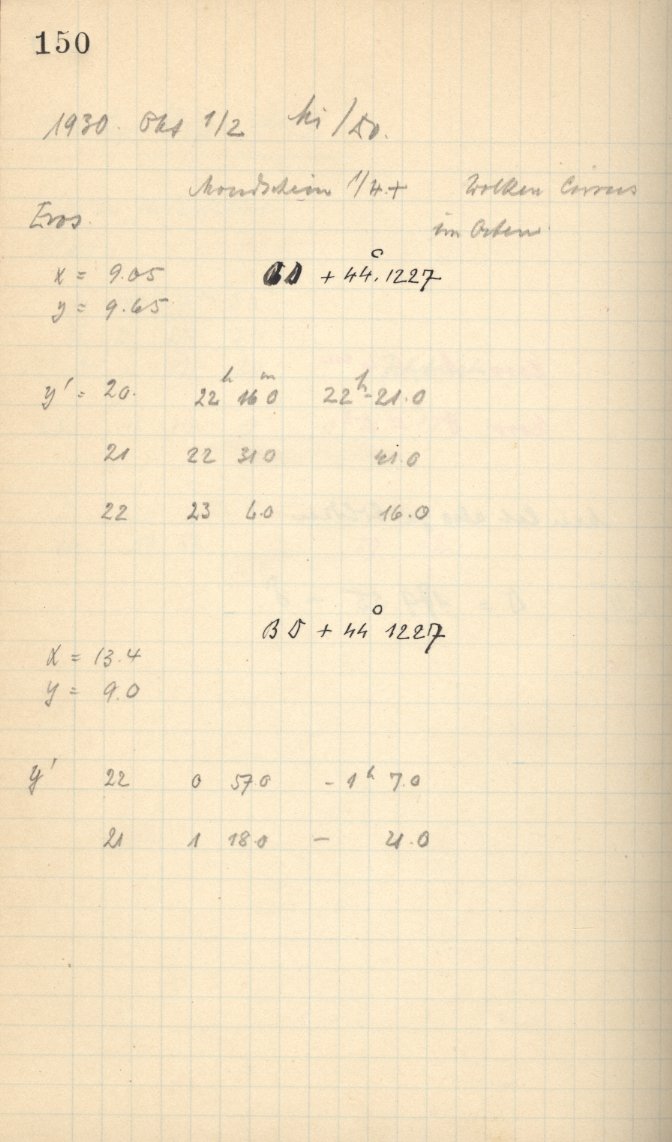 150
1930. Okt 1/2 Mi/Do.
Mondschein 1/4+ Wolken Cirrus
Eros. im Osten
x = 9.05 BD + 44°.1227
y = 9.65
y' = 20. 22h 16m0 22h-21.0
21 22 31 0 41.0
22 23 6.0 16.0
BD + 44° 1227
x = 13.4
y = 9.0
y' 22 0 57.0 - 1h 7.0
21 1 18.0 - 21.0